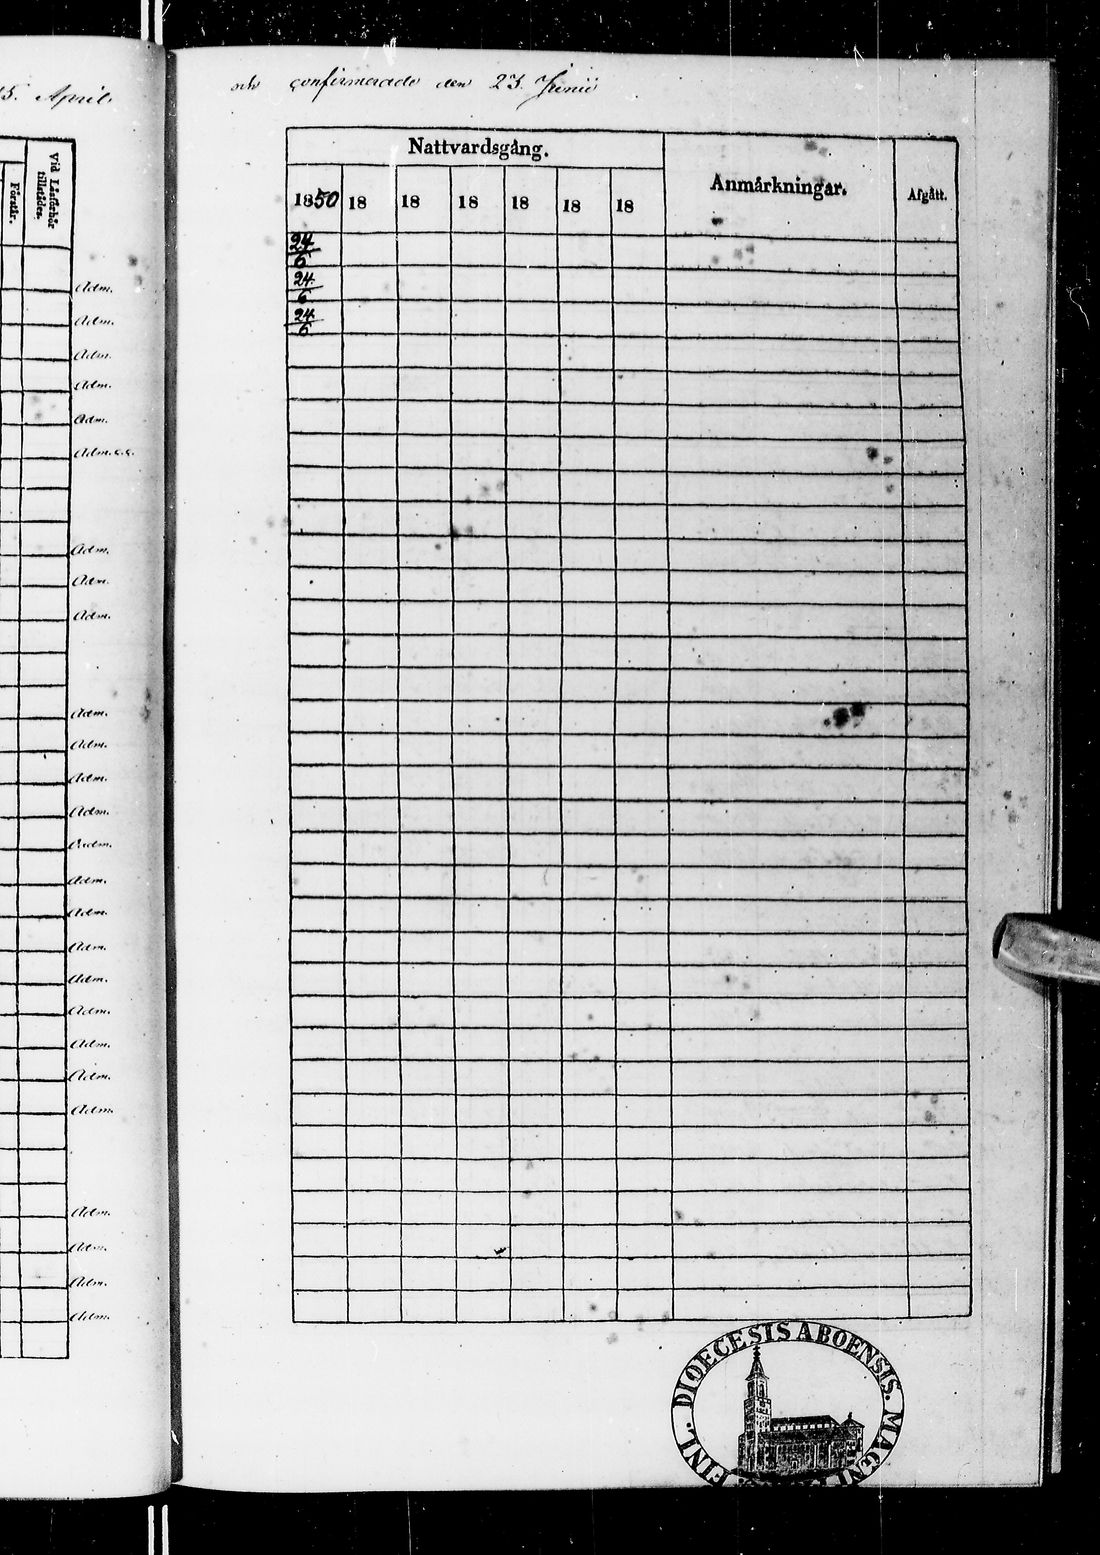 15. April
Vid Läsförhör tillstådes.
Förstår.
Adm.
Adm.
Adm.
Adm.
Adm.
Adm. c.c.
Adm.
Adm.
Adm.
Adm.
Adm.
Adm.
Adm.
Adm.
Adm.
Adm.
Adm.
Adm.
Adm.
Adm.
Adm.
Adm.
Adm.
Adm.
Adm.
och confirmerade den 23. Junii
Nattvardsgång.
Anmårkningar.
Afgått.
1850 18 18 18 18 18 18
24/6
24/6
24/6
FINL. DIOECESIS ABOENSIS. MAGNI